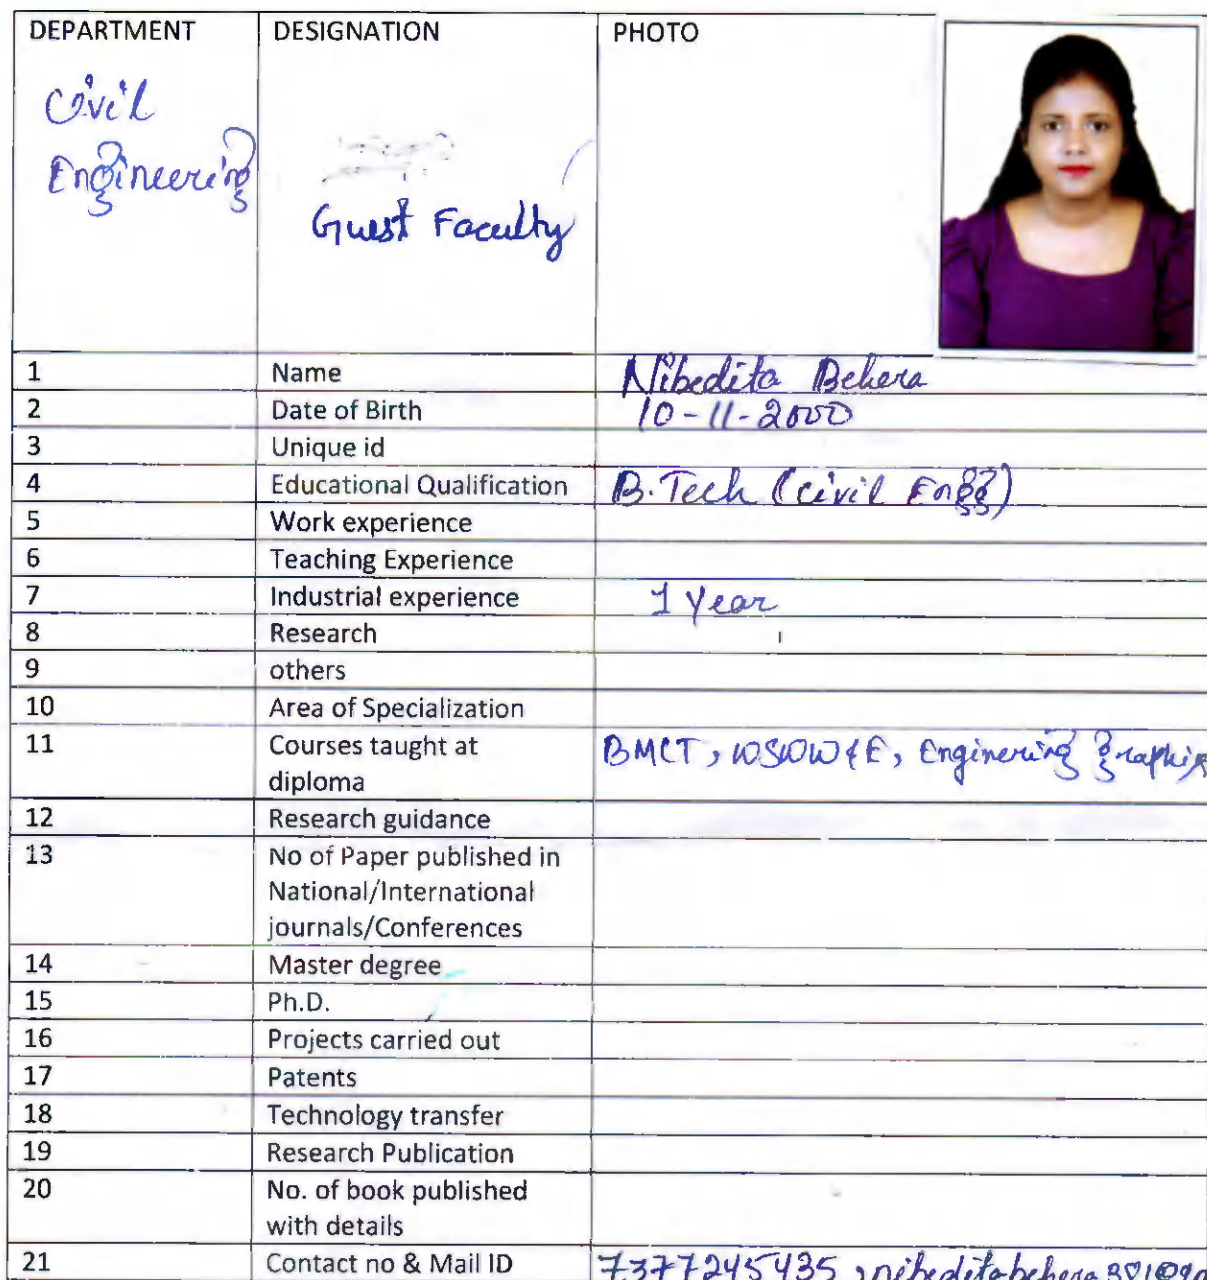 DEPARTMENT DESIGNATION PHOTO
Civil
Engineering
Guest Faculty
1 Name Nibedita Behera
2 Date of Birth 10-11-2000
3 Unique id
4 Educational Qualification B.Tech (civil Engg)
5 Work experience
6 Teaching Experience
7 Industrial experience 1 Year
8 Research
9 others
10 Area of Specialization
11 Courses taught at BMCT, WSWW&E, Enginering graphis
diploma
12 Research guidance
13 No of Paper published in
National/International
journals/Conferences
14 Master degree
15 Ph.D.
16 Projects carried out
17 Patents
18 Technology transfer
19 Research Publication
20 No. of book published
with details
21 Contact no & Mail ID 7377245435, nibeditabehera301@